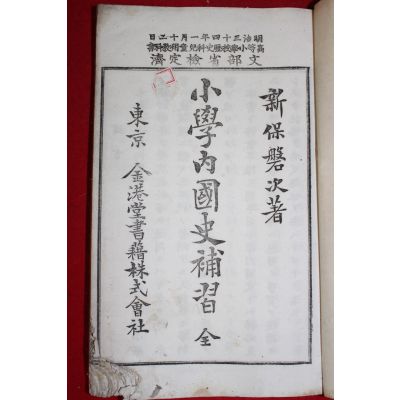 明治三十四年一月十二日
高等小學校歷史科兒童用敎科書
文部省檢定濟
新保磐次著
小學內國史補習 全
東京 金港堂書藉株式會社